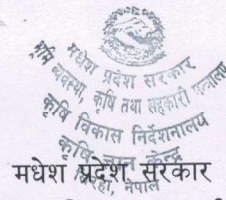 मधेश प्रदेश सरकार
भूमि व्यवस्था, कृषि तथा सहकारी मन्त्रालय
कृषि विकास निर्देशनालय
कृषि ज्ञान केन्द्र
सिरहा, नेपाल
मधेश प्रदेश सरकार